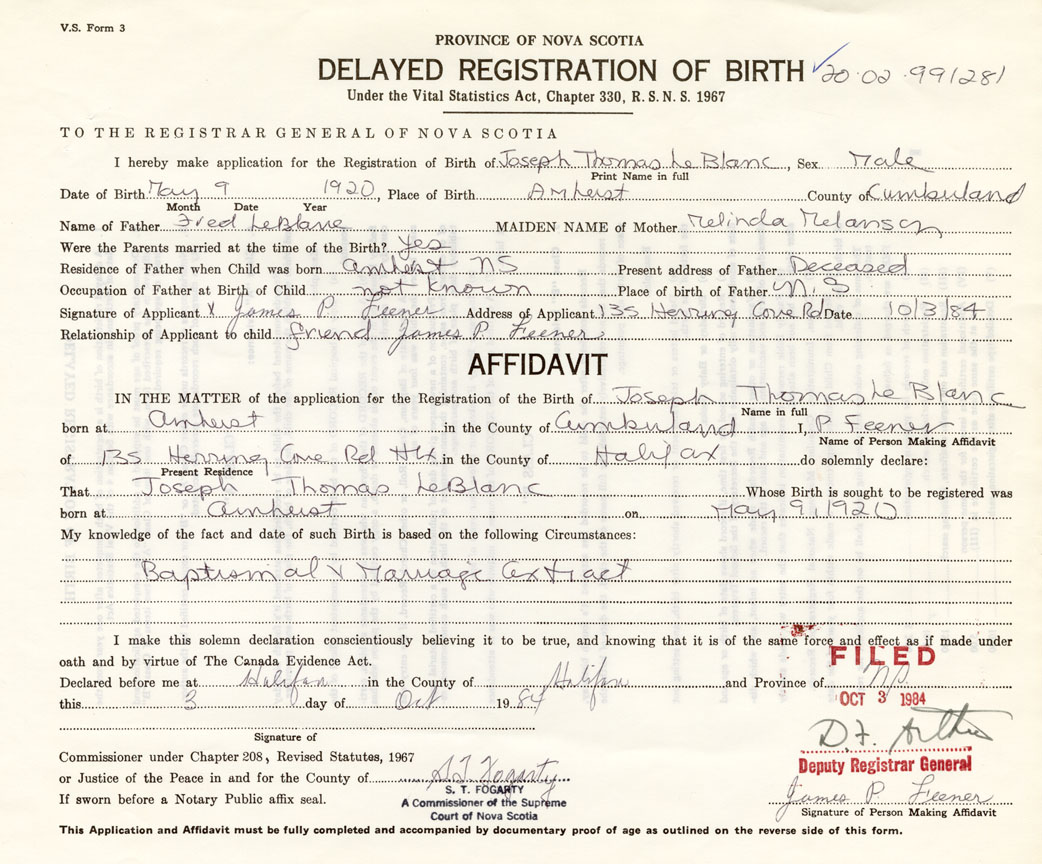 V.S. Form 3
PROVINCE OF NOVA SCOTIA
DELAYED REGISTRATION OF BIRTH ✓ 20·02·99128/
Under the Vital Statistics Act, Chapter 330, R. S. N. S. 1967
TO THE REGISTRAR GENERAL OF NOVA SCOTIA
I hereby make application for the Registration of Birth of Joseph Thomas Le Blanc, Sex Male
Print Name in full
Date of Birth May 9 1920, Place of Birth Amherst County of Cumberland
Month Date Year
Name of Father Fred LeBlanc MAIDEN NAME of Mother Melinda Melanson
Were the Parents married at the time of the Birth? yes
Residence of Father when Child was born Amherst NS Present address of Father Deceased
Occupation of Father at Birth of Child not known Place of birth of Father N.S
Signature of Applicant X James P Feener Address of Applicant 135 Herring Cove Rd Date 10/3/84
Relationship of Applicant to child friend James P. Feener
AFFIDAVIT
IN THE MATTER of the application for the Registration of the Birth of Joseph Thomas Le Blanc
Name in full
born at Amherst in the County of Cumberland I, P Feener
Name of Person Making Affidavit
of 135 Herring Cove Rd Hfx in the County of Halifax do solemnly declare:
Present Residence
That Joseph Thomas LeBlanc Whose Birth is sought to be registered was
born at Amherst on May 9, 1920
My knowledge of the fact and date of such Birth is based on the following Circumstances:
Baptismal & Marriage extract
I make this solemn declaration conscientiously believing it to be true, and knowing that it is of the same force and effect as if made under
oath and by virtue of The Canada Evidence Act.
FILED
Declared before me at Halifax in the County of Halifax and Province of NS
this 3 day of Oct 1984
OCT 3 1984
Signature of
D.F. Arthur
Commissioner under Chapter 208, Revised Statutes, 1967
Deputy Registrar General
or Justice of the Peace in and for the County of ST Fogarty
S. T. FOGARTY
James P. Feener
If sworn before a Notary Public affix seal.
A Commissioner of the Supreme
Court of Nova Scotia
Signature of Person Making Affidavit
This Application and Affidavit must be fully completed and accompanied by documentary proof of age as outlined on the reverse side of this form.